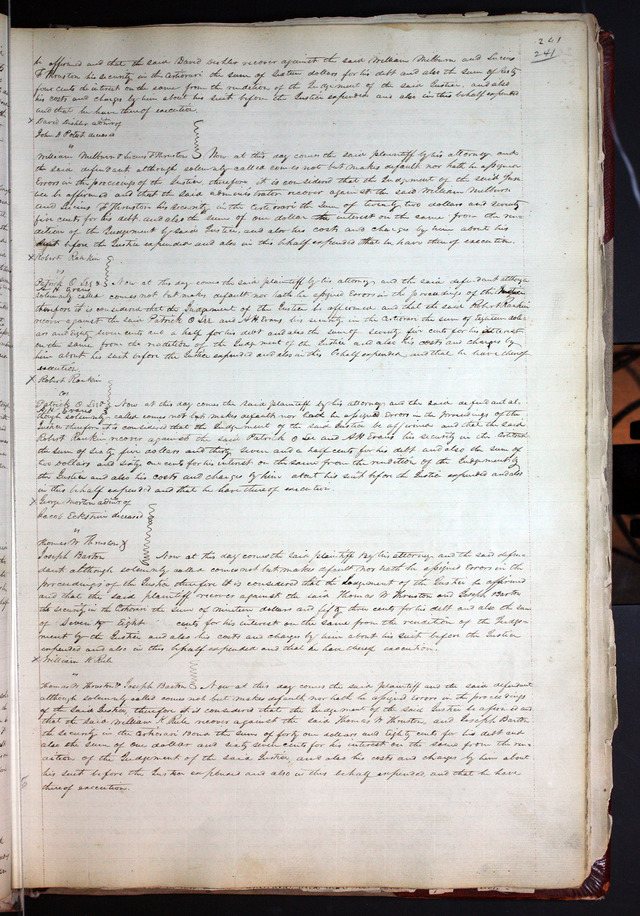 241
241
be affirmed and that the said David Deshler recover against the said William Milburn and Lucius
F Thruston his security in the Certiorari the sum of Sixteen dollars for his debt and also the sum of sixty
five cents the interest on the same from the rendition of the Judgement of the said Justice, and also
his costs and charges by him about his suit before the Justice expended and also in this behalf expended
and that he have thereof execution
x David Deshler admr of
John D deceased
vs
William Milburn & Lucius F Thruston Now at this day comes the said plaintiff by his attorney and
the said defendant although solemnly called comes not but makes default nor hath he assigned
Errors in the proceedings of the Justice, therefore it is considered that the Judgement of the said Jus
tice be affirmed and that the said administrator recover against the said William Milburn
and Lucius F Thruston his security in the Certiorari the sum of twenty two dollars and seventy
five cents for his debt and also the sum of one dollar the interest on the same from the ren
dition of the Judgement by said Justice, and also his costs and charges by him about his
suit before the Justice expended and also in this behalf expended that he have thereof execution.
x Robert Rankin
vs
Patrick O Lee &
A H Evans Now at this day comes the said plaintiff by his attorney and the said defendant although
solemnly called comes not but makes default nor hath he assigned Errors in the proceedings of the Justice
therefore it is considered that the Judgement of the Justice be affirmed and that the said Robert Rankin
recover against the said Patrick O Lee and A H Evans his security in the Certiorari the sum of Eighteen doll
ars and eighty seven cents and a half for his debt and also the sum of seventy five cents for his interest
on the same from the rendition of the Judgment of the Justice and also his costs and charges by
him about his suit before the Justice expended and also in this behalf expended, and that he have thereof
execution
x Robert Rankin
vs
Patrick O Lee &
A H Evans Now at this day comes the said plaintiff by his attorney and the said defendant al-
though solemnly called comes not but makes default nor hath he assigned Errors in the proceedings of the
Justice therefore it is considered that the Judgement of the said Justice be affirmed and that the said
Robert Rankin recover against the said Patrick O Lee and A H Evans his security in the Certiorari
the sum of sixty five dollars and thirty seven and a half cents for his debt and also the sum of
two dollars and sixty one cents for his interest on the same from the rendition of the Judgement by
the Justice and also his costs and charges by him about his suit before the Justice expended and also
in this behalf expended and that he have thereof execution
x George Morton admr of
Jacob Eckstein deceased
vs
Thomas W Thruston &
Joseph Barton Now at this day comes the said plaintiff by his attorney and the said defen-
dant although solemnly called comes not but makes default nor hath he assigned Errors in the
proceedings of the Justice therefore it is considered that the Judgement of the Justice be affirmed
and that the said plaintiff recover against the said Thomas W Thruston and Joseph Barton
the security in the Certiorari the sum of Nineteen dollars and fifty three cents for his debt and also the sum
of Seventy eight cents for his interest on the same from the rendition of the Judge-
ment by the Justice and also his costs and charges by him about his suit before the Justice
expended and also in this behalf expended and that he have thereof execution.
x William K Rule
vs
Thomas W Thruston & Joseph Barton Now at this day comes the said plaintiff and the said defendant
although solemnly called comes not but makes default nor hath he assigned errors in the proceedings
of the said Justice, therefore it is considered that the Judgement of the said Justice be affirmed and
that the said William K Rule recover against the said Thomas W Thruston and Joseph Barton
the security in the Certiorari Bond the sum of forty one dollars and eighty cents for his debt and
also the sum of one dollar and sixty seven cents for his interest on the same from the ren
dition of the Judgement of the said Justice, and also his costs and charges by him about
his suit before the Justice expended and also in this behalf expended and that he have
thereof execution.